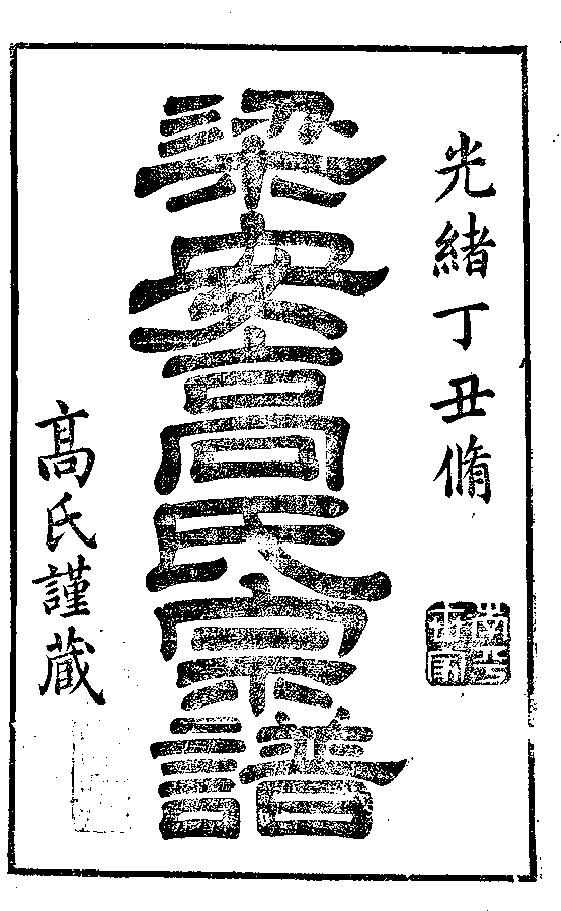 光緒丁丑脩
梁安高氏宗譜
高氏謹藏